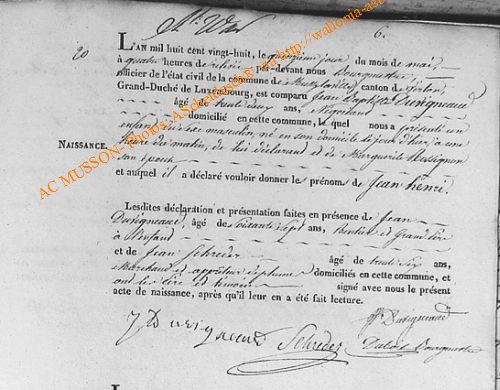 6.
20
NAISSANCE.
L'AN mil huit cent vingt-huit, le quinzième jour du mois de mai
à quatre heures de relevée par-devant nous Bourgmestre
officier de l'état civil de la commune de canton de
Grand-Duché de Luxembourg, est comparu Jean Baptiste Duvigneaud
âgé de trente deux ans, Négociant
domicilié en cette commune, lequel nous a présenté un
enfant du sexe masculin, né en son domicile le jour d'hier, à une
heure du matin, de lui déclarant et de Marguerite
son épouse
et auquel il a déclaré vouloir donner les prénoms de Jean henri
Lesdites déclaration et présentation faites en présence de Jean
Duvigneaud, âgé de soixante sept ans, Rentier et Grand père
à l'enfant
et de Jean Schreder âgé de trente six ans,
Marchand domiciliés en cette commune, et
ont le père et témoins signé avec nous le présent
acte de naissance, après qu'il leur en a été fait lecture.
Duvigneaud
Duvigneaud Schreder Bourgmestre
AC MUSSON- Photos: http://wallonia-as